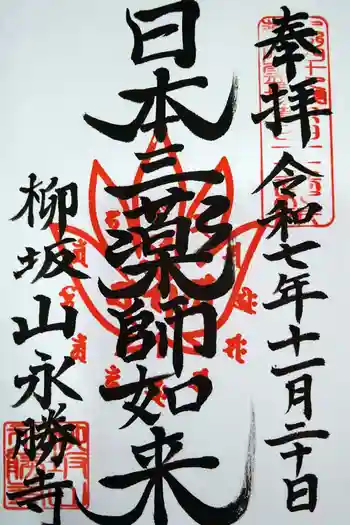 奉拝
令和七年十一月二十日
日本三薬師如来
柳坂山永勝寺